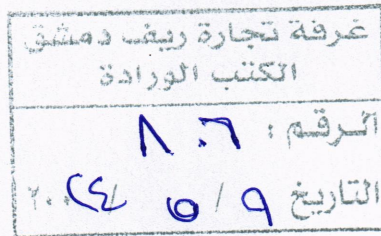 غرفة تجارة ريف دمشق
الكتب الورادة
الرقم : ٨٠٦
التاريخ ٩ / ٥ / ٢٠٢٤